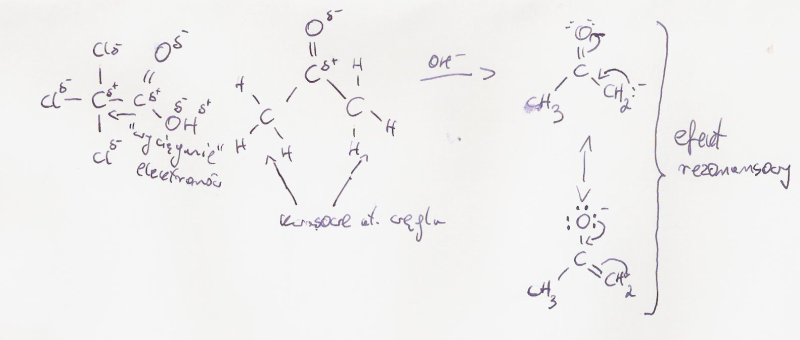 Clδ-
Oδ-
Clδ- Cδ+ Cδ+
δ- δ+
OH
Clδ-
"wyciąganie"
elektronów
Oδ-
Cδ+
H H
C C
H H H H
at. węgla
OH-
O
C
CH3 CH2:-
:O:-
C
CH3 CH2
efekt
rezonansowy